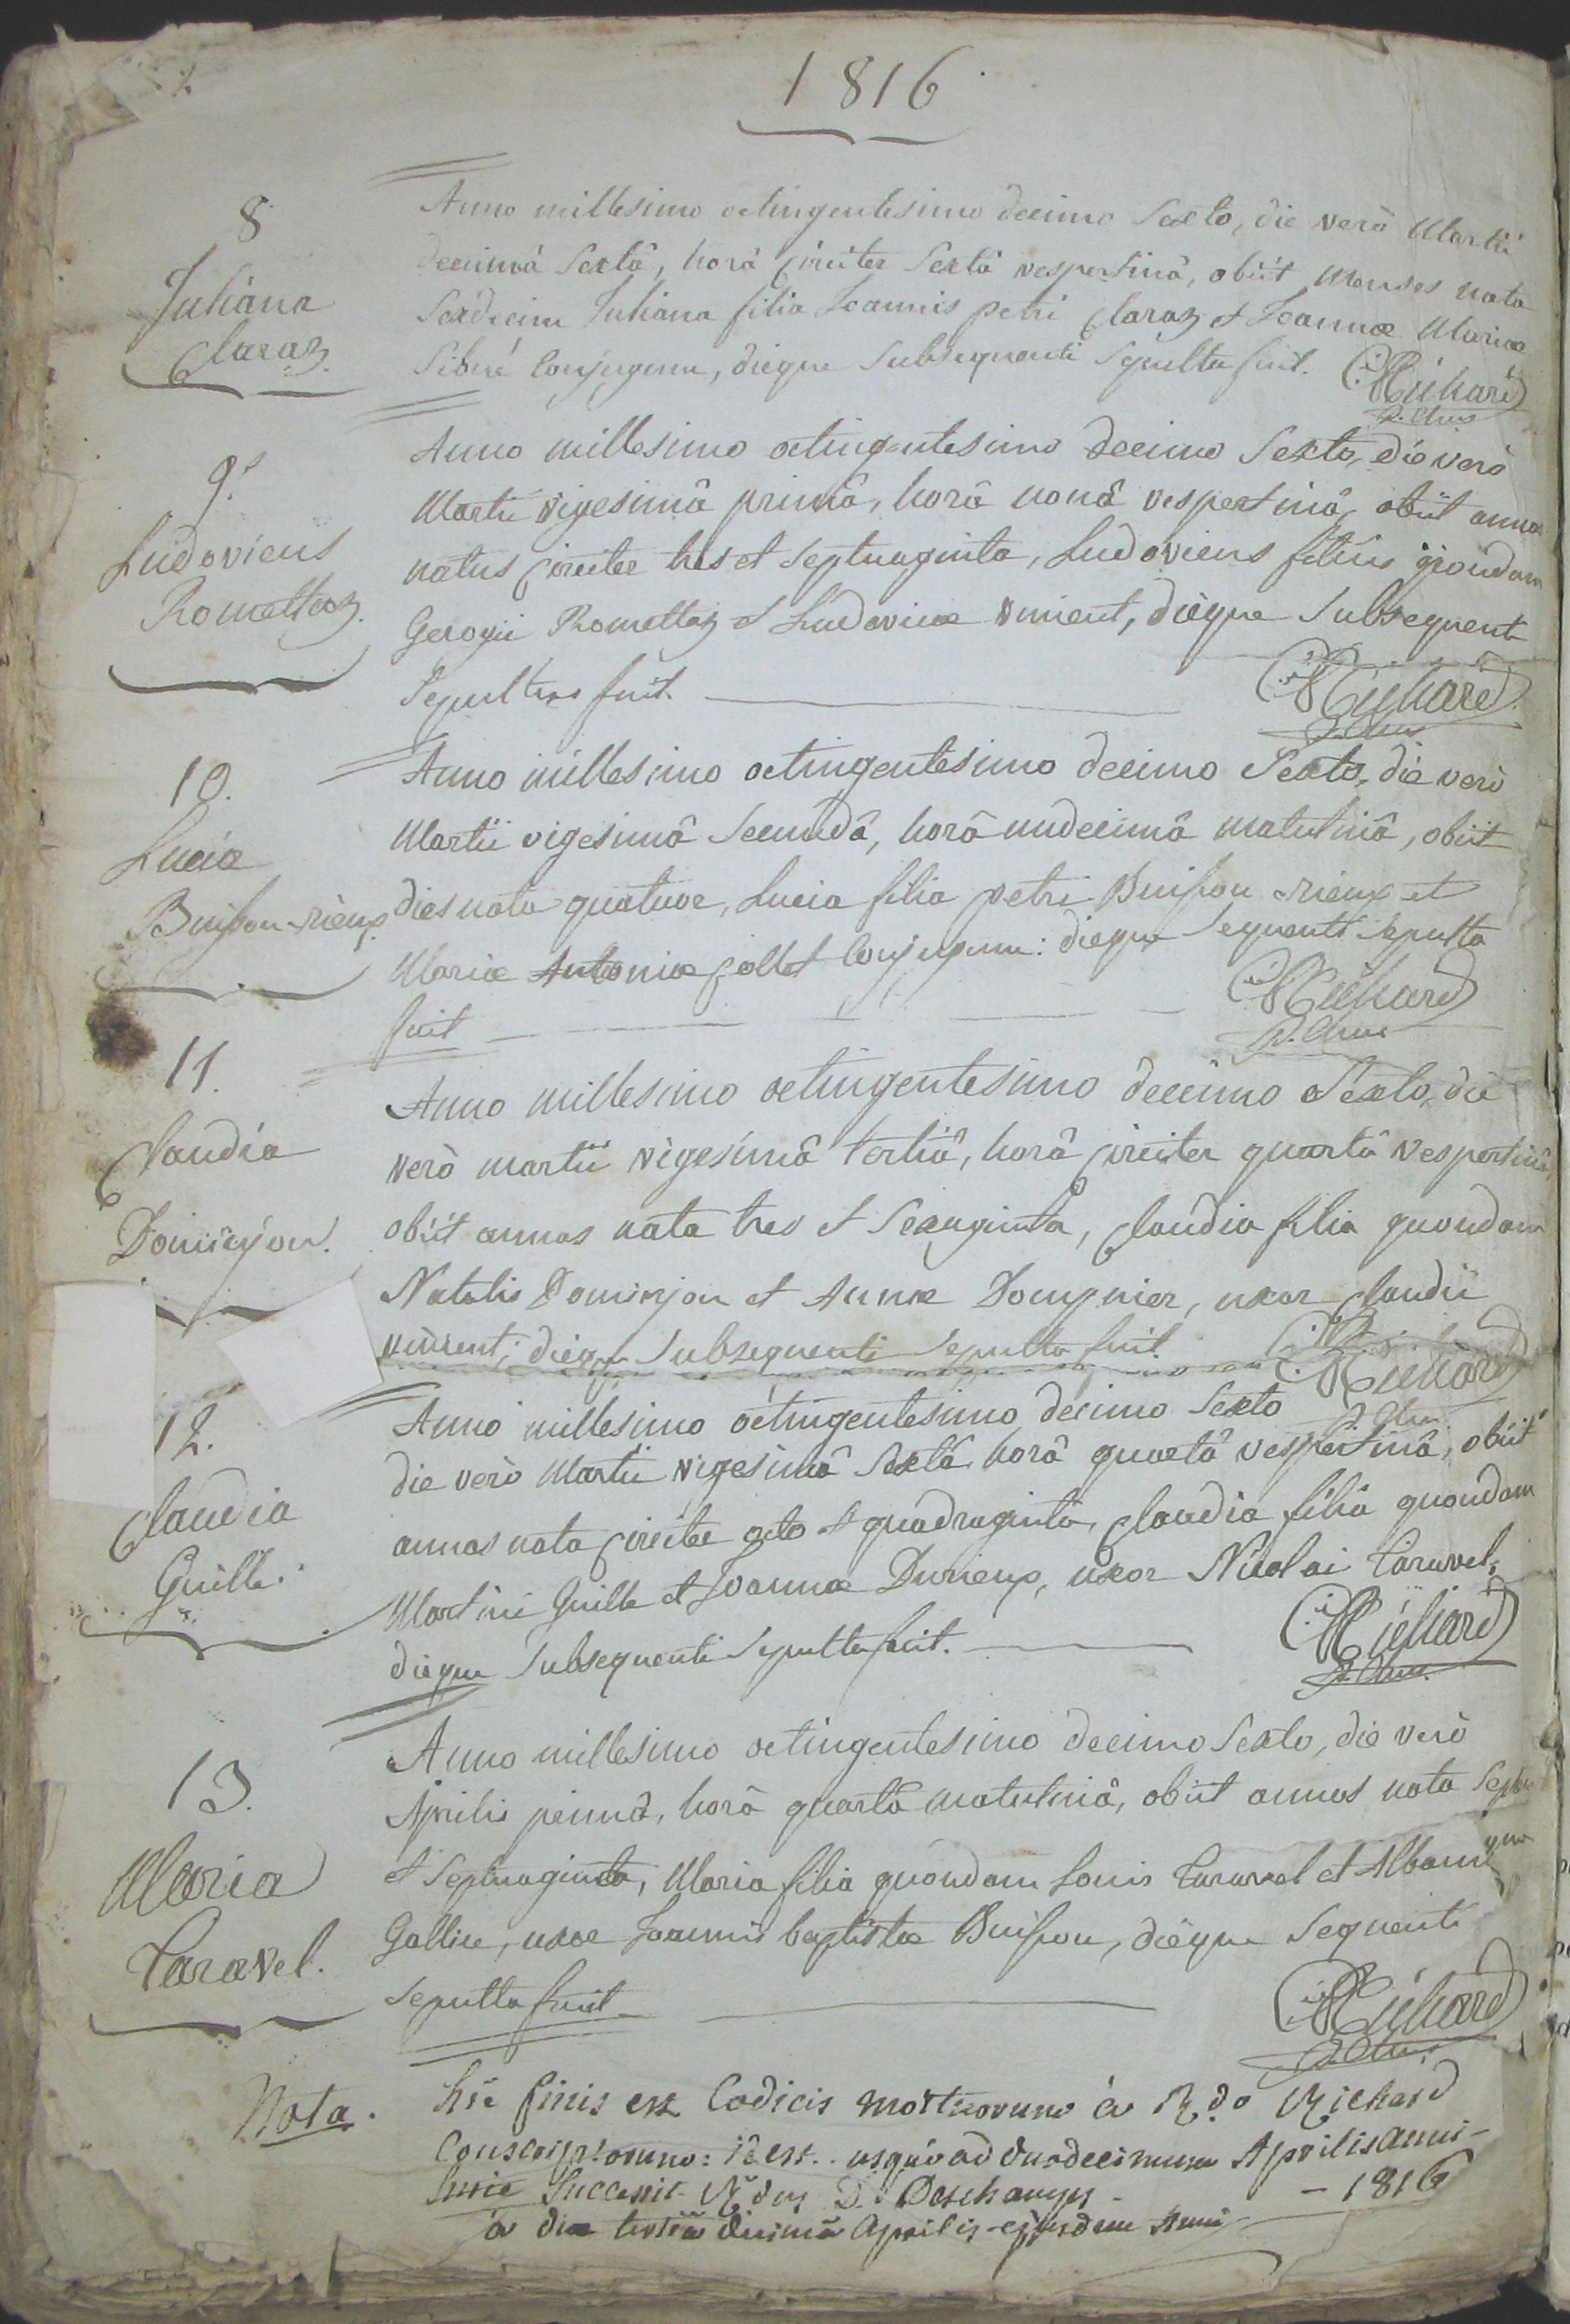 1816
8
Juliana
Claraz.
Anno millesimo octingentesimo decimo Sexto, die verò Martii
decimâ Sextâ, horâ circiter Sextâ vespertinâ, obiit menses nata
Sexdecim Juliana filia Joannis petri Claraz et Joannæ Mariæ
Sibué Conjugum, dieque Subsequenti Sepulta fuit. Richard
9.
Ludovicus
Romettaz.
Anno millesimo octingentesimo decimo Sexto, die verò
Martii vigesimâ primâ, horâ nonâ vespertinâ, obiit annos
natus circiter tres et septuaginta, Ludovicus filius quondam
Gerogii Romettaz et Ludovicæ vinient, dieque Subsequenti
Sepultus fuit. Richard
10.
Lucia
Buisson-rieux
Anno millesimo octingentesimo decimo Sexto, die verò
Martii vigesimâ Secundâ, horâ undecimâ matutinâ, obiit
dies nata quatuor, Lucia filia petri Buisson-rieux et
Mariæ Antoniæ Collet Conjugum: dieque Sequenti Sepulta
fuit Richard
11.
Claudia
Dominjon.
Anno millesimo octingentesimo decimo Sexto, die
verò martii vigesimâ tertiâ, horâ circiter quartâ vespertinâ,
obiit annos nata tres et Sexaginta, Claudia filia quondam
Natalis Dominjon et Annæ Dompnier, uxor Claudii
dieque Subsequenti Sepulta fuit. Richard
12.
Claudia
Guille.
Anno millesimo octingentesimo decimo Sexto
die verò Martii vigesimâ Sextâ, horâ quartâ vespertinâ, obiit
annos nata circiter octo et quadraginta, Claudia filia quondam
Martini Guille et Joannæ Durieux, uxor Nicolai Taravel,
dieque Subsequenti Sepulta fuit. Richard
13.
Maria
Taravel.
Anno millesimo octingentesimo decimo Sexto, die verò
Aprilis primâ, horâ quartâ matutinâ, obiit annos nata
et Septuaginta, Maria filia quondam Louis Taravel et
Gallice, uxor Joannis baptistæ Buisson, dieque Sequenti
Sepulta fuit Richard
Nota.
hic finis est Codicis mortuorum à R.do Richard
Conscriptorum: id est.. usque ad duodecimum Aprilis anni-
huic Successit R.dus D. Deschamps - - 1816
à die tertiâ decimâ Aprilis ejusdem Anni